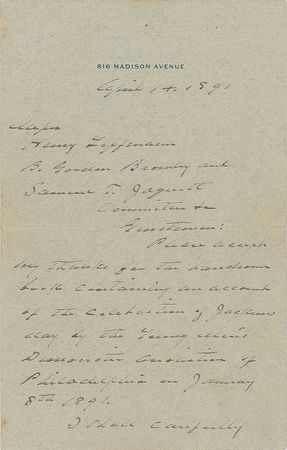 816 MADISON AVENUE.
April 14. 1891
Messrs
Henry
B. Gordon Bromley and
Samuel T. Jaquett
Committee &c
Gentlemen:
Please accept
my thanks for the handsome
book containing an account
of the Celebration of Jacksons
day by the Young Men's
Democratic Association of
Philadelphia on January
8th 1891.
I shall carefully